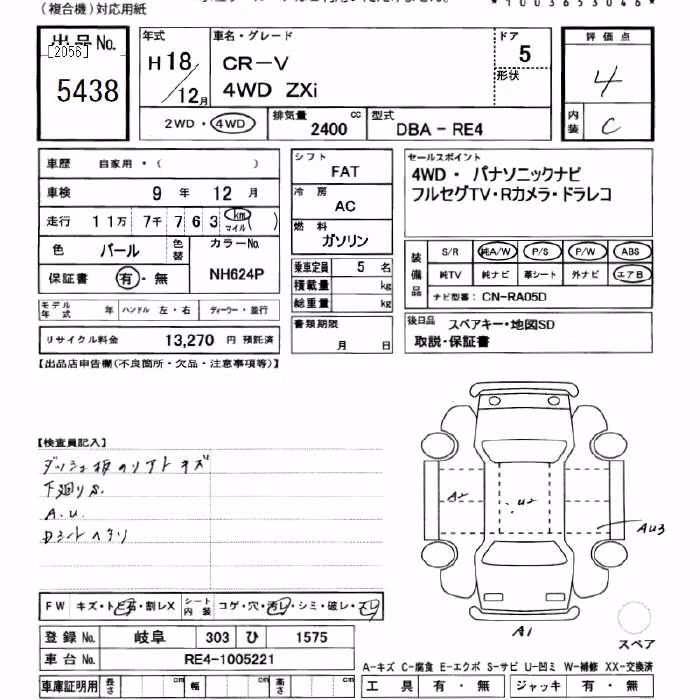 (複合機)対応用紙
*1003653046*
出品No.
[2056]
5438
年式
H18/12月
車名・グレード
CR-V
4WD ZXi
ドア
5
形状
評価点
4
内装
C
2WD・4WD
排気量
2400 cc
型式
DBA-RE4
車歴 自家用・( )
車検 9年 12月
走行 11万 7千 763 km マイル( )
色 パール 色替
カラーNo.
NH624P
保証書 有・無
モデル年式 年 ハンドル 左・右 ディーラー・並行
リサイクル料金 13,270円 預託済
シフト
FAT
冷房
AC
燃料
ガソリン
乗車定員 5名
積載量 kg
総重量 kg
書類期限
月 日
セールスポイント
4WD・ パナソニックナビ
フルセグTV・Rカメラ・ドラレコ
装備品
S/R 純A/W P/S P/W ABS
純TV 純ナビ 革シート 外ナビ エアB
ナビ型番: CN-RA05D
後日品 スペアキー・地図SD
取説・保証書
【出品店申告欄(不良箇所・欠品・注意事項等)】
【検査員記入】
ダッシュ板のリアト キズ
下廻りS.
A.U.
A2
U2
AU3
A1
スペア
FW キズ・トビ石・割レX シート内装 コゲ・穴・汚レ・シミ・破レ・スレ
登録No. 岐阜 303 ひ 1575
車台No. RE4-1005221
車庫証明用 長さ cm 幅 cm 高さ cm
A-キズ C-腐食 E-エクボ S-サビ U-凹ミ W-補修 XX-交換済
工具 有・無 ジャッキ 有・無